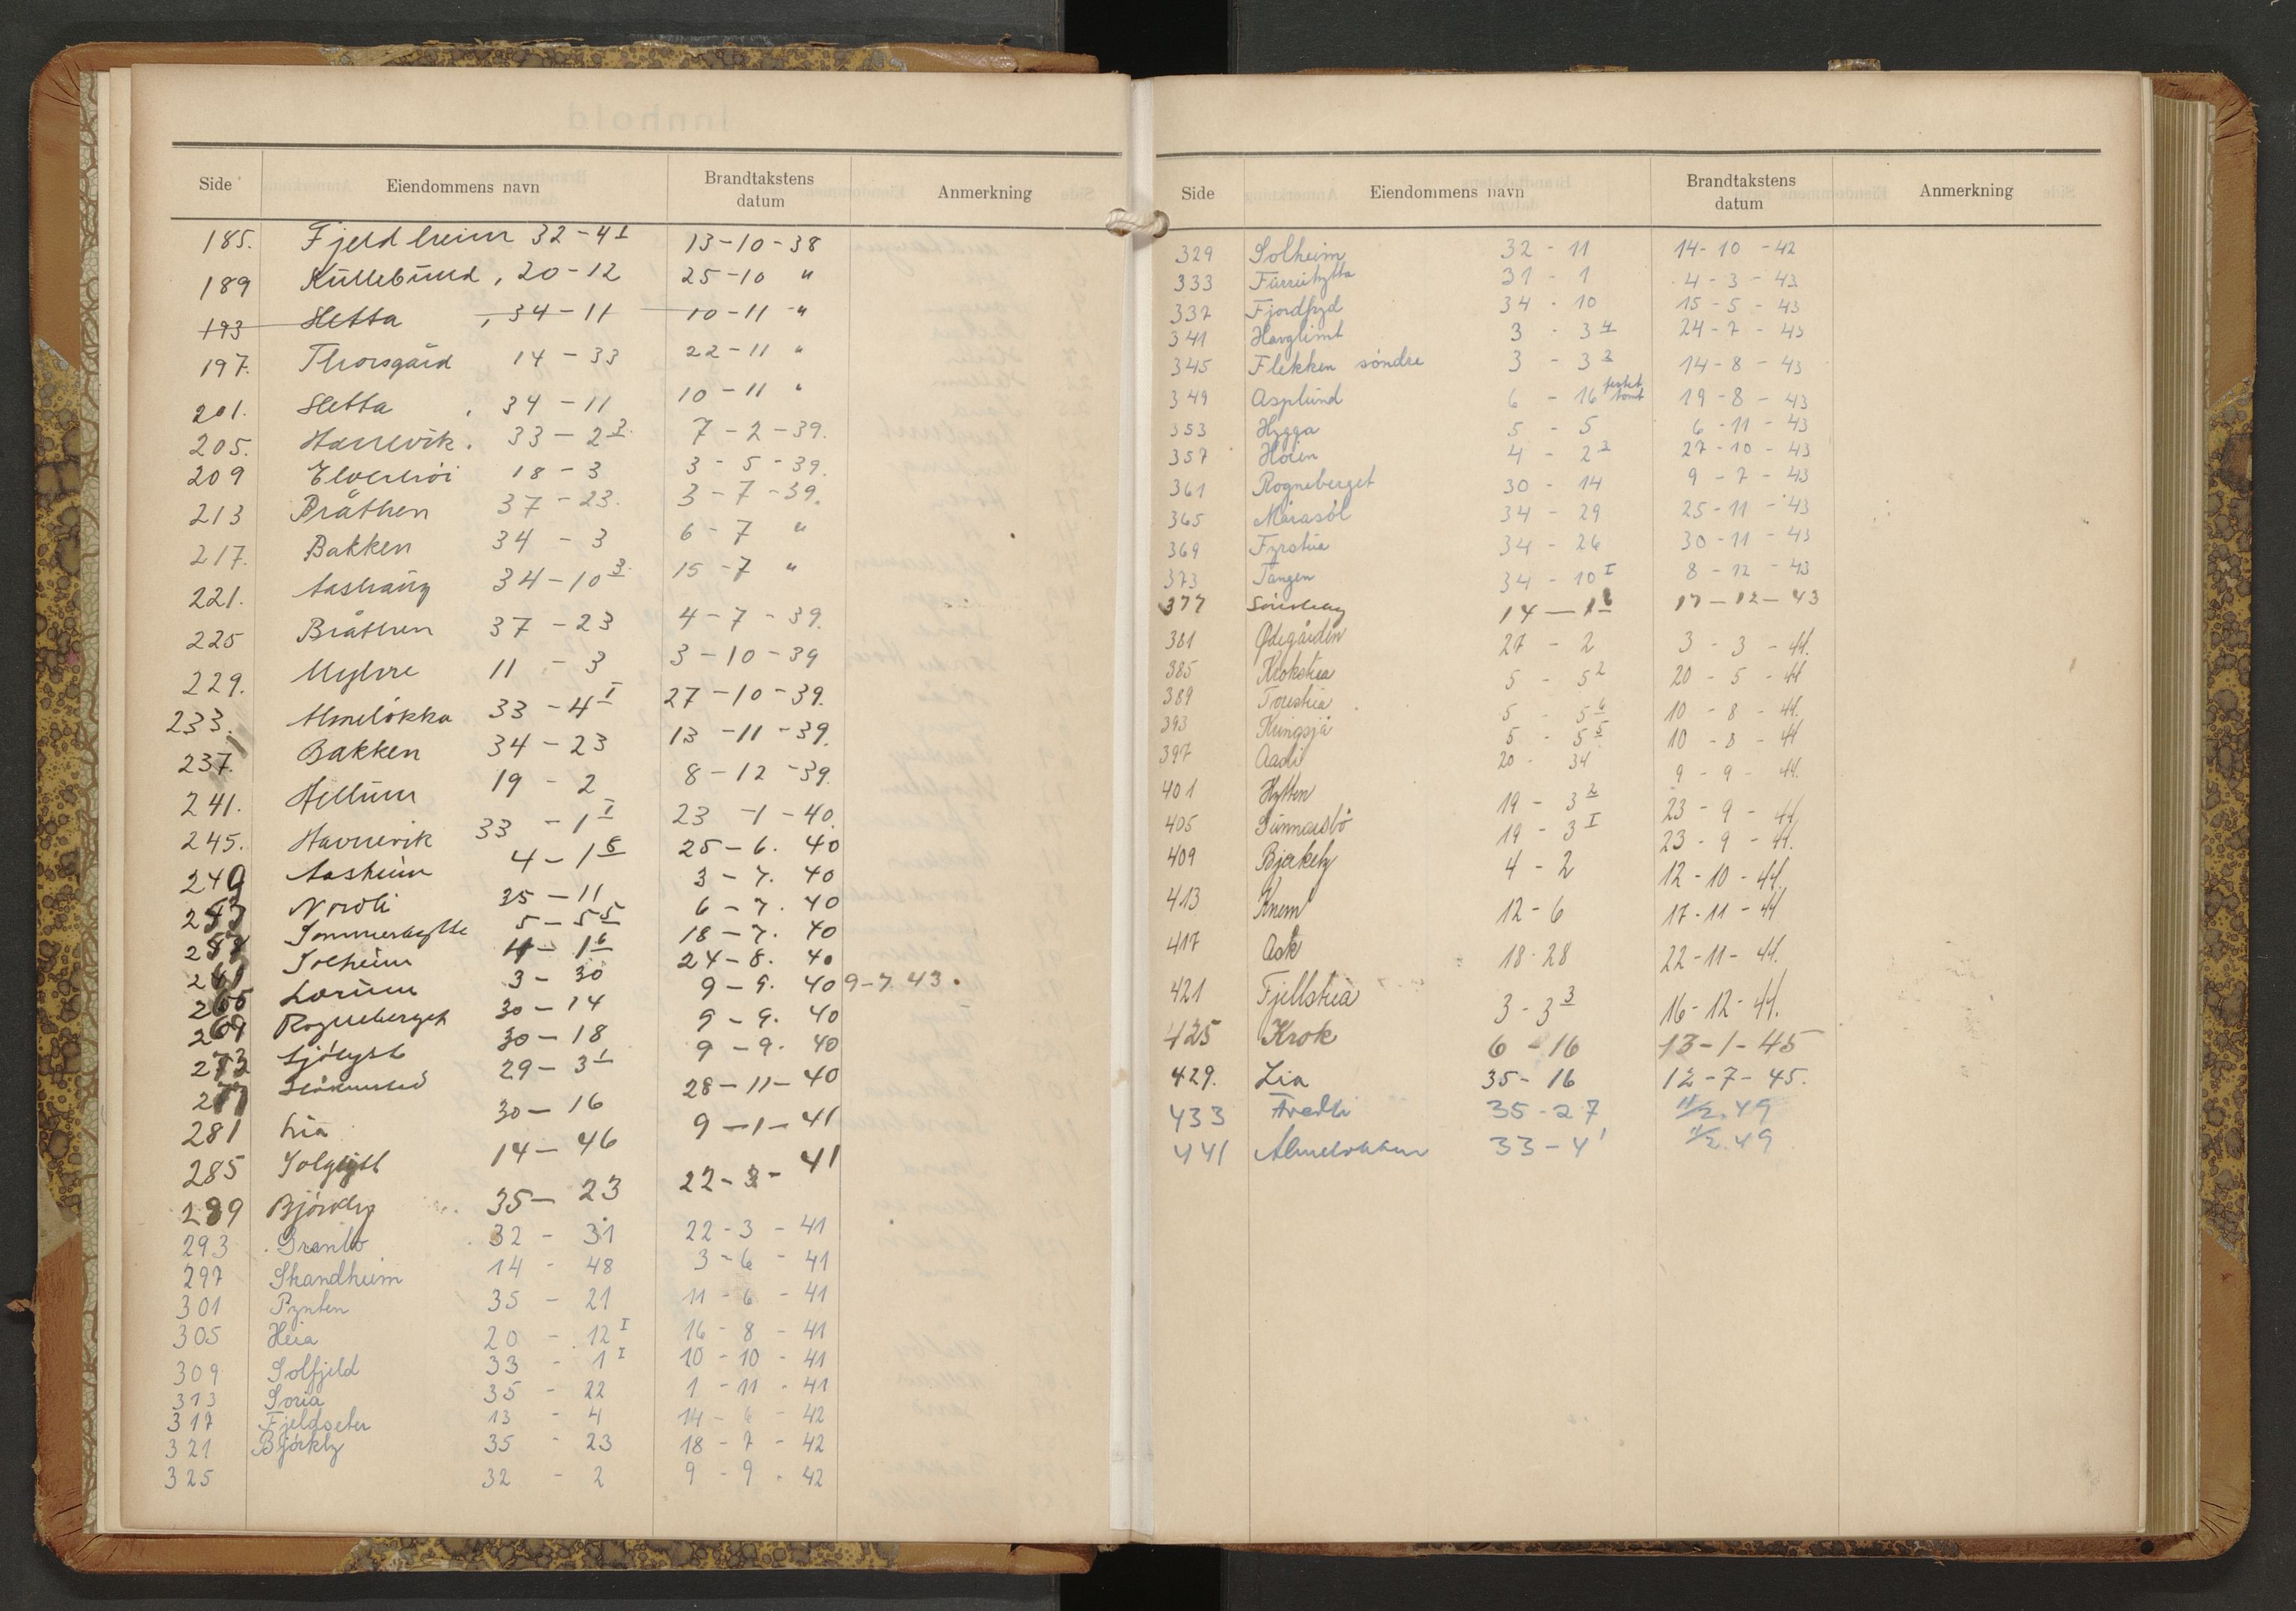 Innhold
Side Eiendommens navn Brandtakstens datum Anmerkning
185. Fjeldheim 32-4 I 13-10-38
189 Kullebund, 20-12 25-10 "
193 Sletta, 34-11 10-11 "
197. Thorsgård 14-33 22-11 "
201. Sletta, 34-11 10-11 "
205. Havnevik. 33-2 2. 7-2-39.
209 Elverhöi 18-3 3-5-39.
213 Bråthen 37-23. 3-7-39.
217. Bakken 34-3 6-7 "
221. Aashaug 34-10 3. 15-7 "
225 Bråthen 37-23 4-7-39.
229. Myhre 11-3 3-10-39
233. Almelökka 33-4 I 27-10-39.
237. Bakken 34-23 13-11-39.
241. Hellum 19-2 8-12-39.
245. Havnevik 33-1 I 23-1-40.
249 Aasheim 4-1 8 25-6. 40
253 Nordli 35-11 3-7. 40
257 Sommerhytte 5-5 5 6-7. 40
261 Solheim 4-1 6 18-7. 40
265 3-30 24-8. 40
269 Rogneberget 30-14 9-9. 40 9-7 43.
273 Sjölyst 30-18 9-9. 40
277 29-3 1 9-9. 40
281 Lia 30-16 28-11-40
285 Solglytt 14-46 9-1-41
289 Björkly 35-23 22-3-41
293 Granbo 32-31 22-3-41
297 Strandheim 14-48 3-6-41
301 Pynten 35-21 11-6-41
305 Heia 20-12 I 16-8-41
309 Solfjeld 33-1 I 10-10-41
313 Soria 35-22 1-11-41
317 Fjeldseter 13-4 14-6-42
321 Björkly 35-23 18-7-42
325 32-2 9-9-42
Side Eiendommens navn Brandtakstens datum Anmerkning
329 Solheim 32-11 14-10-42
333 Furuhytta 31-1 4-3-43
337 34-10 15-5-43
341 Havglimt 3-3 4 24-7-43
345 Flekken söndre 3-3 2 14-8-43
349 Asplund 6-16 festet tomt 19-8-43
353 Hygga 5-5 6-11-43
357 Höien 4-2 3 27-10-43
361 Rogneberget 30-14 9-7-43
365 Marasol 34-29 25-11-43
369 Fyrstua 34-26 30-11-43
373 Tangen 34-10 I 8-12-43
377 14-1 6 17-12-43
381 Ødegården 27-2 3-3-44.
385 Krokstua 5-5 2 20-5-44
389 5-5 6 10-8-44.
393 Kringsjå 5-5 5 10-8-44
397 Aasli 20-34 9-9-44.
401 Hytten 19-3 2 23-9-44.
405 Sunnarsbö 19-3 I 23-9-44.
409 Bjerkely 4-2 12-10-44.
413 Knem 12-6 17-11-44
417 Ask 18-28 22-11-44.
421 Fjellstua 3-3 3 16-12-44.
425 Krok 6-16 13-1-45
429. Lia 35-16 12-7-45.
433 35-27 11/2. 49
441 Almelokken 33-4' 11/2. 49